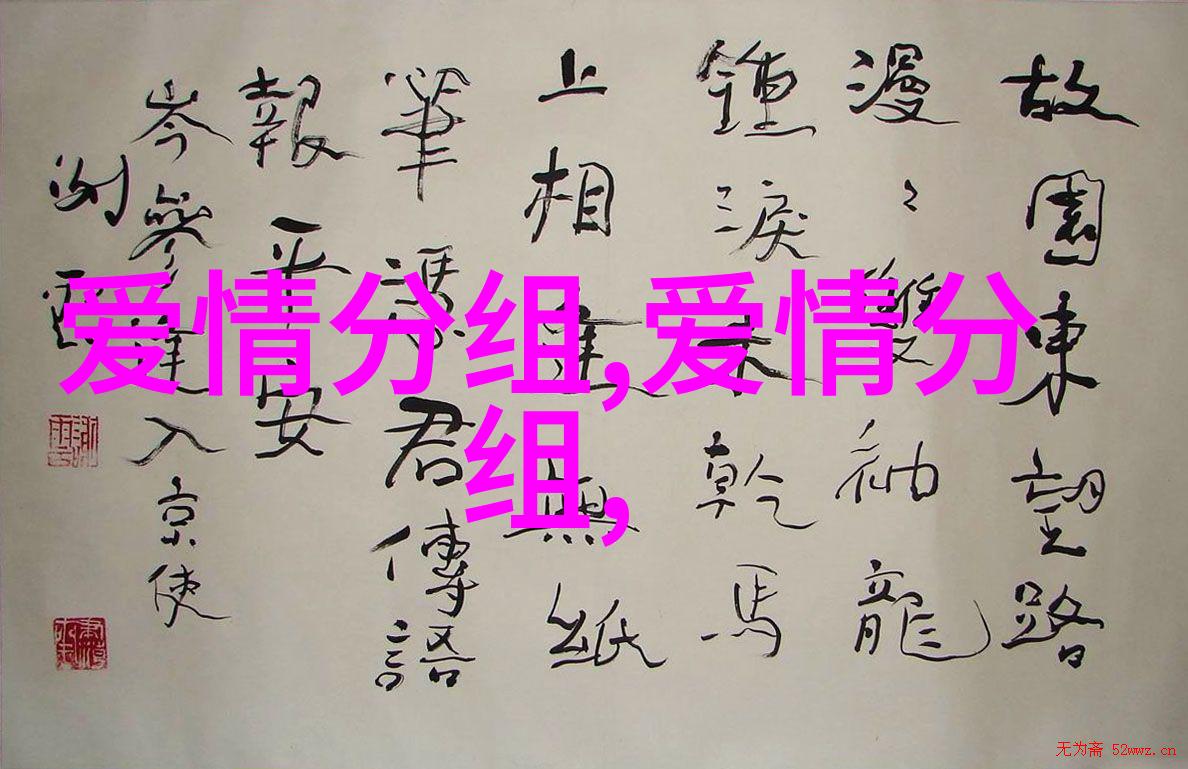 故園東望路
漫〻雙袖龍
鍾淚不乾馬
上相逢無紙
筆憑君傳語
報平安
岑參逢入京使
爱情分组,爱情分
组,
无为斋 52wwz.cn